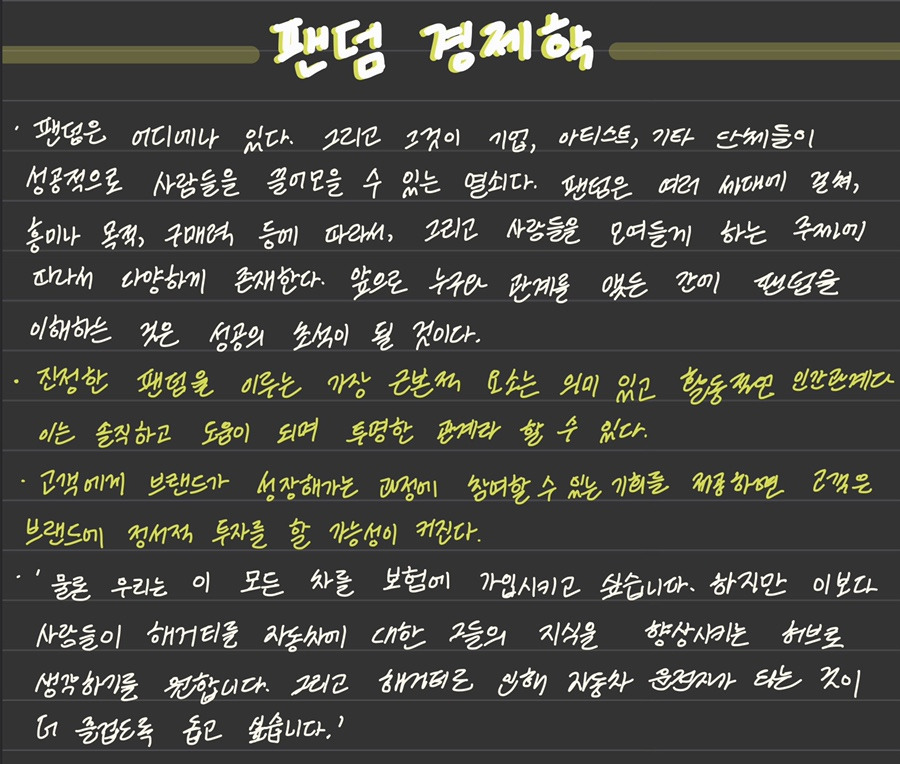 팬덤 경제학
· 팬덤은 어디에나 있다. 그리고 그것이 기업, 아티스트, 기타 단체들이
성공적으로 사람들을 끌어모을 수 있는 열쇠다. 팬덤은 여러 세대에 걸쳐,
흥미나 목적, 구매력 등에 따라서, 그리고 사람들을 모여들게 하는 주제에
따라서 다양하게 존재한다. 앞으로 누구와 관계를 맺든 간에 팬덤을
이해하는 것은 성공의 초석이 될 것이다.
· 진정한 팬덤을 이루는 가장 근본적 요소는 의미 있고 활동적인 인간관계다
이는 솔직하고 도움이 되며 투명한 관계라 할 수 있다.
· 고객에게 브랜드가 성장해가는 과정에 참여할 수 있는 기회를 제공하면 고객은
브랜드에 정서적 투자를 할 가능성이 커진다.
· '물론 우리는 이 모든 차를 보험에 가입시키고 싶습니다. 하지만 이보다
사람들이 해거티를 자동차에 대한 그들의 지식을 향상시키는 허브로
생각하기를 원합니다. 그리고 해거티로 인해 자동차 운전자가 타는 것이
더 즐겁도록 돕고 싶습니다.'